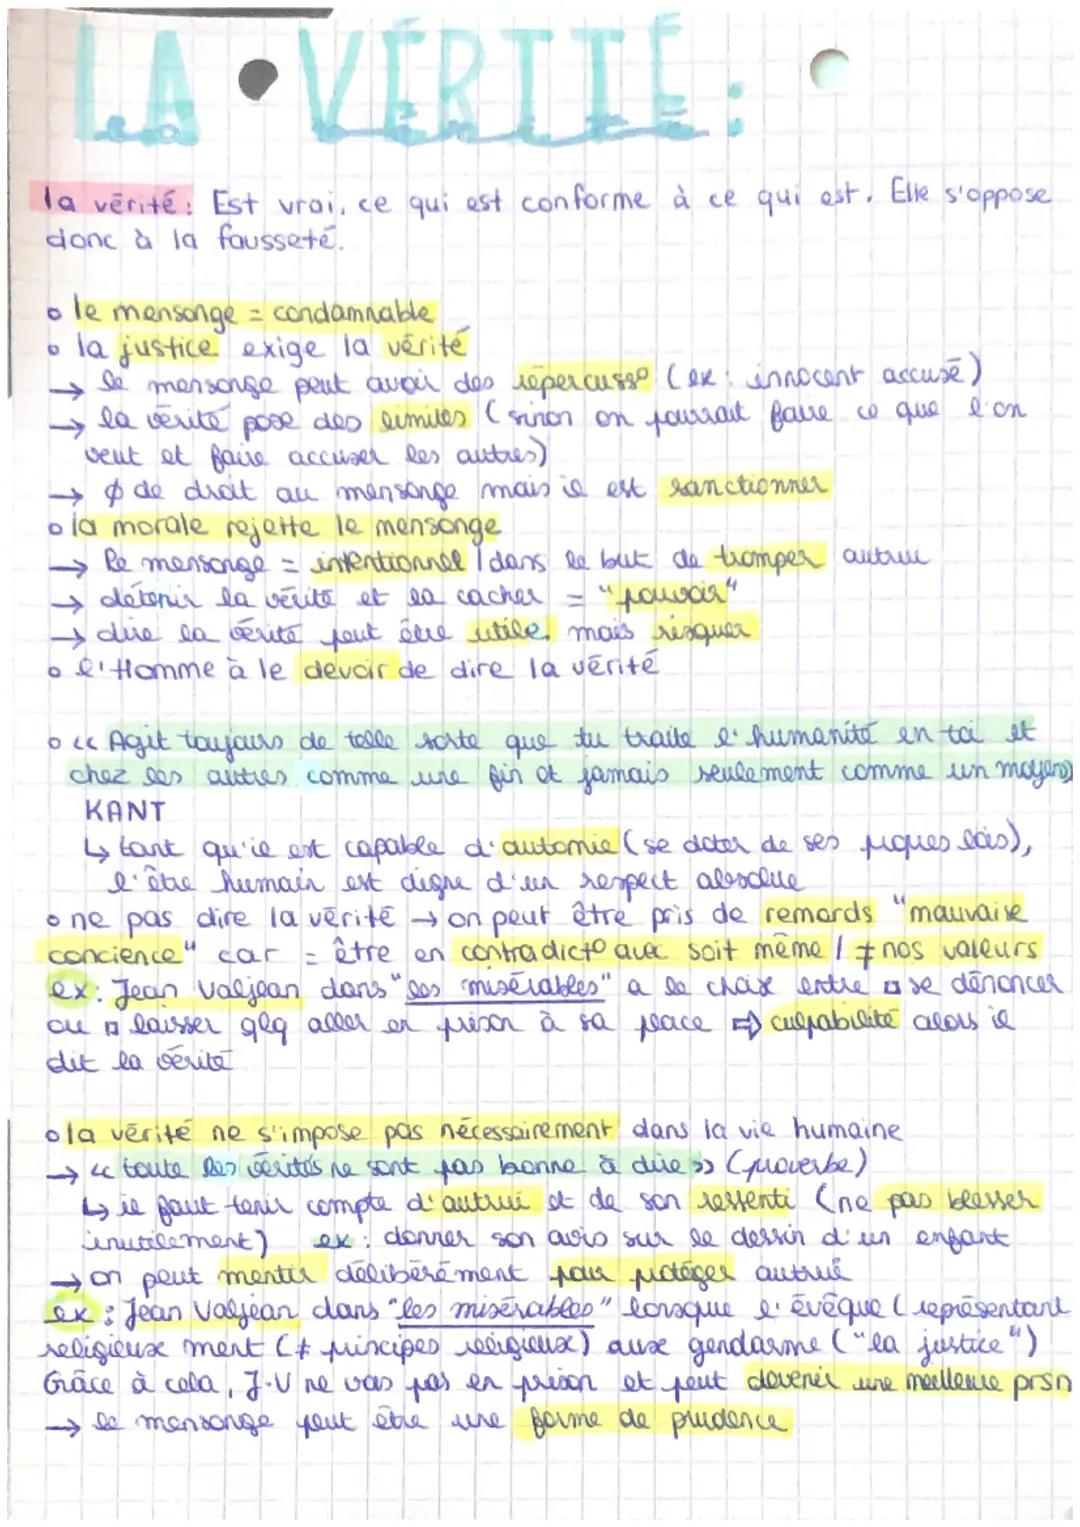 LA VÉRITÉ:
La vérité
la vérité: Est vrai, ce qui est conforme à ce qui est. Elle s'oppose
donc à la fausseté.
• le mensonge = condamnable
• la justice exige la vérité
→ le mensonge peut avoir des répercuss° (ex: innocent accusé)
→ la vérité pose des limites (sinon on pourrait faire ce que l'on
veut et faire accuser les autres)
→ ∅ de droit au mensonge mais il est sanctionner
• la morale rejette le mensonge
→ le mensonge = intentionnel / dans le but de tromper autrui
→ détenir la vérité et la cacher = "pouvoir"
→ dire la vérité peut être utile, mais risquer
• l'Homme à le devoir de dire la vérité
• « Agit toujours de telle sorte que tu traite l'humanité en toi et
chez les autres comme une fin et jamais seulement comme un moyen»
KANT
↳ tant qu'il est capable d'automie (se doter de ses propres lois),
l'être humain est digne d'un respect absolue
• ne pas dire la vérité → on peut être pris de remords "mauvaise
concience" car = être en contradict° avec soit même / ≠ nos valeurs
ex: Jean Valjean dans "les misérables" a le choix entre □ se dénoncer
ou □ laisser qlq aller en prison à sa place ⇒ culpabilité alors il
dit la vérité
• la vérité ne s'impose pas nécessairement dans la vie humaine
→ « toute les vérités ne sont pas bonne à dire » (proverbe)
↳ il faut tenir compte d'autrui et de son ressenti (ne pas blesser
inutilement) ex: donner son avis sur le dessin d'un enfant
→ on peut mentir délibérément pour protéger autrui
ex: Jean Valjean dans "les misérables" lorsque l'évêque (représentant
religieux ment (≠ principes religieux) aux gendarme ("la justice")
Grâce à cela, J.V ne vas pas en prison et peut devenir une meilleure prsn
→ le mensonge peut être une forme de prudence